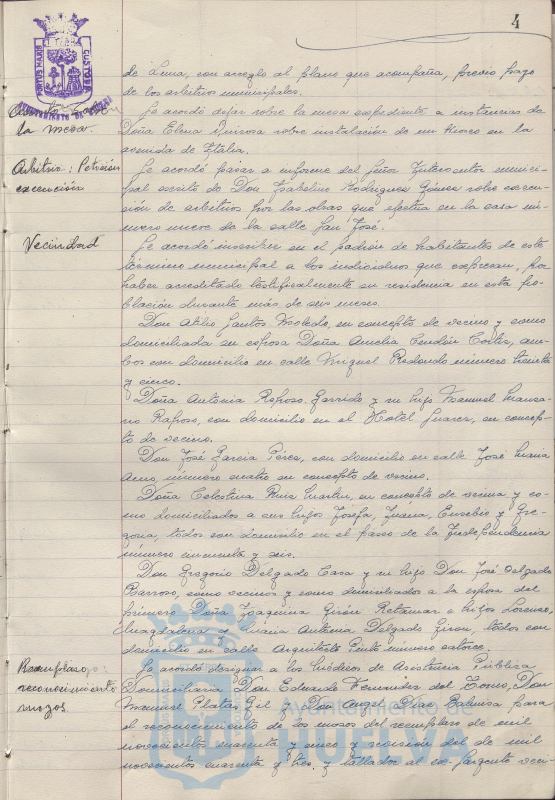 4
PORTUS MARIS
CUSTODIA
AYUNTAMIENTO DE
de Luna, con arreglo al plano que acompaña, previo pago
de los arbitrios municipales.
la mesa.
Se acordó dejar sobre la mesa expediente a instancias de
Doña Elena Quirosa sobre instalación de un Kiosco en la
avenida de Italia.
Arbitrios: Petición
excención
Se acordó pasar a informe del Señor Interventor munici-
pal escrito de Don Isabelino Rodriguez Gómez sobre excen-
sión de arbitrios por las obras que efectua en la casa nú-
mero nueve de la calle San José.
Vecindad
Se acordó inscribir en el padrón de habitantes de este
término municipal a los individuos que expresan, por
haber acreditado testificalmente su residencia en esta po-
blación durante más de seis meses.
Don Atilio Santos en concepto de vecino y como
domiciliada su esposa Doña Amelia Cendón Cortés, am-
bos con domicilio en calle Miguel Redondo número treinta
y cinco.
Doña Antonia Raposo Garrido y su hijo Manuel
Raposo, con domicilio en el Hotel Suarez, en concep-
to de vecino.
Don José Garcia Pérez, con domicilio en calle José Maria
Amo, número cuatro en concepto de vecino.
Doña Celestina Martin, en concepto de vecina y co-
mo domiciliados a sus hijos Josefa, Juana, Eusebio y Gre-
goria, todos con domicilio en el paseo de la Independencia
número cincuenta y seis.
Don Gregorio Delgado Casa y su hijo Don José Delgado
Barroso, como vecinos y como domiciliados a la esposa del
primero Doña Joaquina Girón Retamar e hijos Lorenzo,
Magdalena y Maria Antonia Delgado Giron, todos con
domicilio en calle Arquitecto Pinto número catorce.
Reemplazo:
reconocimiento
mozos
Se acordó designar a los Médicos de Asistencia Pública
Domiciliaria Don Eduardo Fernandez del Torno, Don
Manuel Gil y Don Angel Diaz para
el reconocimiento de los mozos del reemplazo de mil
novecientos cuarenta y cinco y revisión del de mil
novecientos cuarenta y tres, y tallador al ex-sargento veci-
Ayuntamiento de
HUELVA